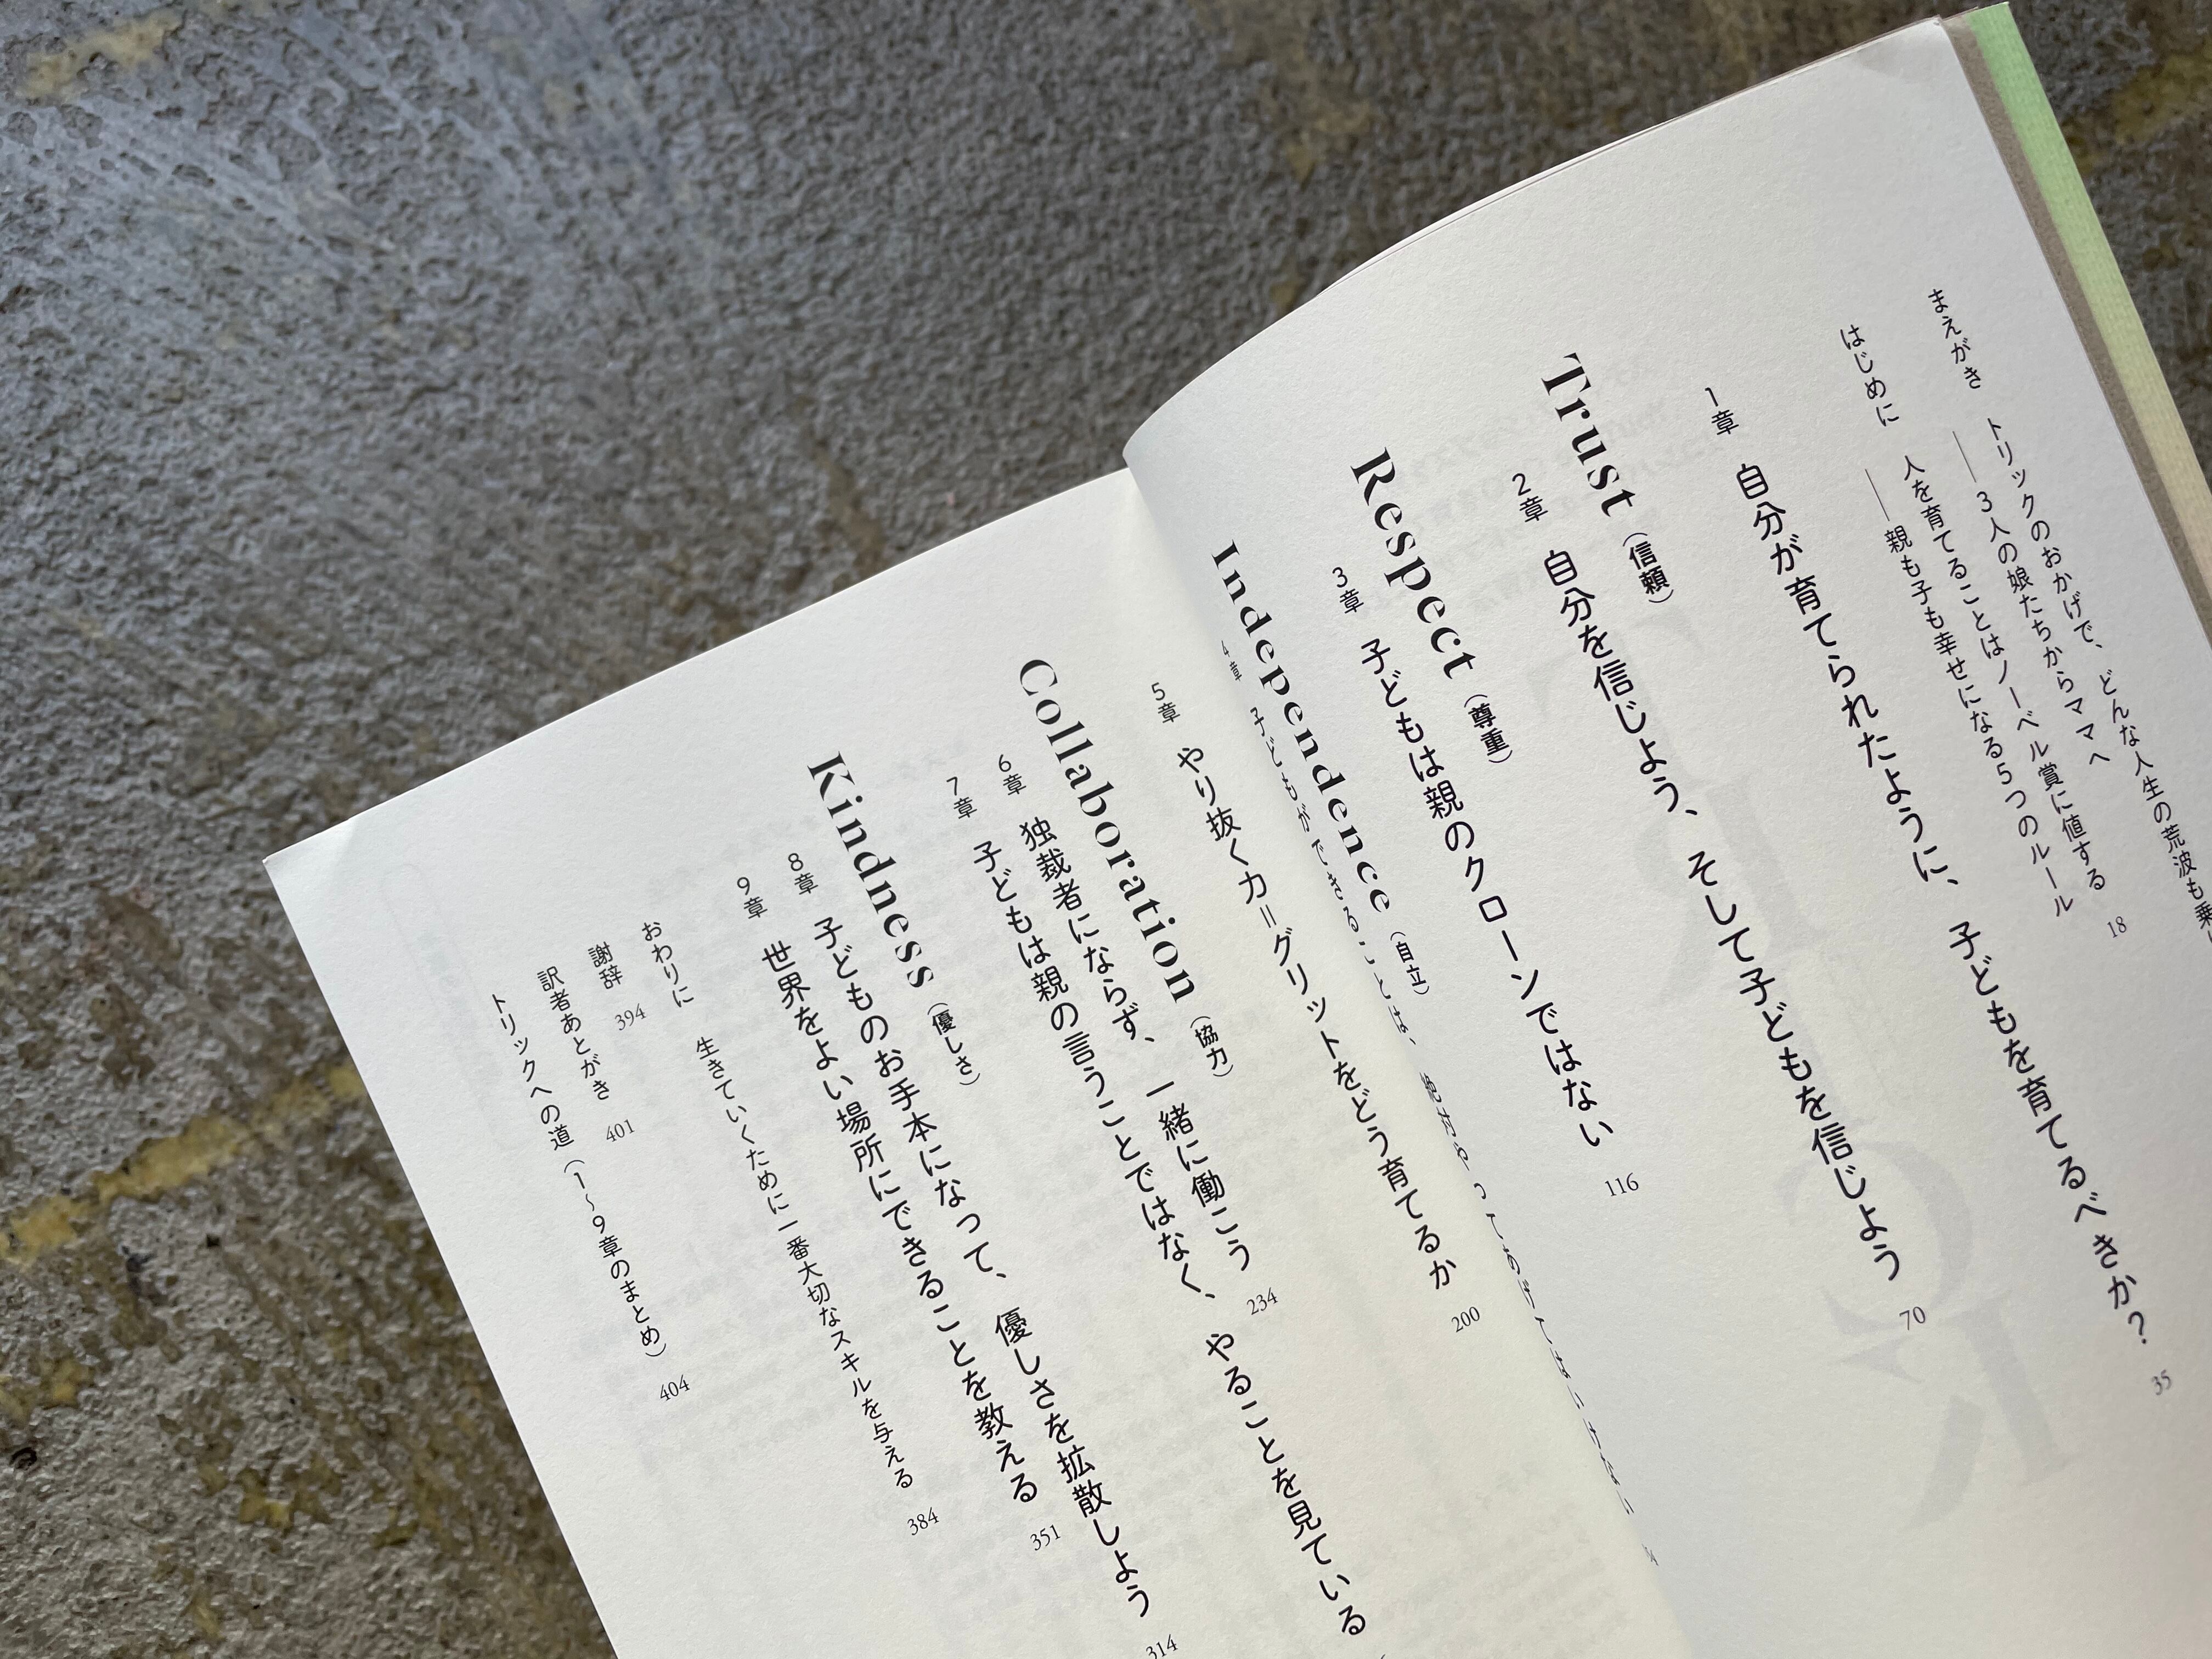 まえがき トリックのおかげで、どんな人生の荒波も
――3人の娘たちからママへ
はじめに 人を育てることはノーベル賞に値する
――親も子も幸せになる5つのルール 18
1章 自分が育てられたように、子どもを育てるべきか？ 35
Trust（信頼）
2章 自分を信じよう、そして子どもを信じよう 70
Respect（尊重）
3章 子どもは親のクローンではない 116
Independence（自立）
4章 子どもができることは、
5章 やり抜く力＝グリットをどう育てるか 200
Collaboration（協力）
6章 独裁者にならず、一緒に働こう 234
7章 子どもは親の言うことではなく、やることを見ている
Kindness（優しさ）
8章 子どものお手本になって、優しさを拡散しよう 314
9章 世界をよい場所にできることを教える 351
おわりに 生きていくために一番大切なスキルを与える 384
謝辞 394
訳者あとがき 401
トリックへの道（1～9章のまとめ） 404